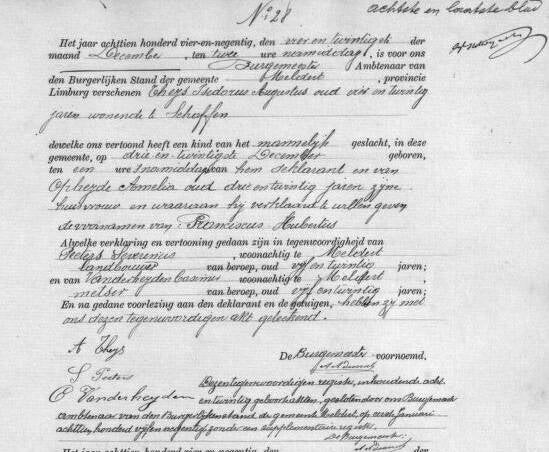 N° 28
achtste en laatste blad
Het jaar achttien honderd vier-en-negentig, den vier en twintigste der
maand December, ten twee ure namiddag, is voor ons
Burgemeester Ambtenaar van
den Burgerlijken Stand der gemeente Meldert, provincie
Limburg verschenen Theys Isidorus Augustus oud vier en twintig
jaren wonende te Schaffen
dewelke ons vertoond heeft een kind van het mannelijk geslacht, in deze
gemeente, op drie en twintigste December geboren,
ten een ure namiddag van hem deklarant en van
Opheyde Amelia oud drie en twintig jaren zijne
huisvrouw en waaraan hij verklaard te willen geven
de voornamen van Franciscus Hubertus
Alwelke verklaring en vertooning gedaan zijn in tegenwoordigheid van
Peeters Severinus, woonachtig te Meldert
landbouwer van beroep, oud vijf en twintig jaren;
en van Vanderheyden Casimir woonachtig te Meldert,
metser van beroep, oud vijf en twintig jaren;
En na gedane voorlezing aan den deklarant en de getuigen, hebben zij met
ons dezen tegenwoordigen akt geteekend.
A Theys
De Burgemeester voornoemd,
S Peeters
C Vanderheyden
Dezen tegenwoordigen register, inhoudende acht
en twintig geboortakten, gesloten door ons Burgemeester
ambtenaar van den Burgerlijkenstand der gemeente Meldert, op eersten Januari
achttien honderd vijf en negentig zonder een supplementaire register.
De Burgemeester
Het jaar achttien honderd vier en negentig, den der